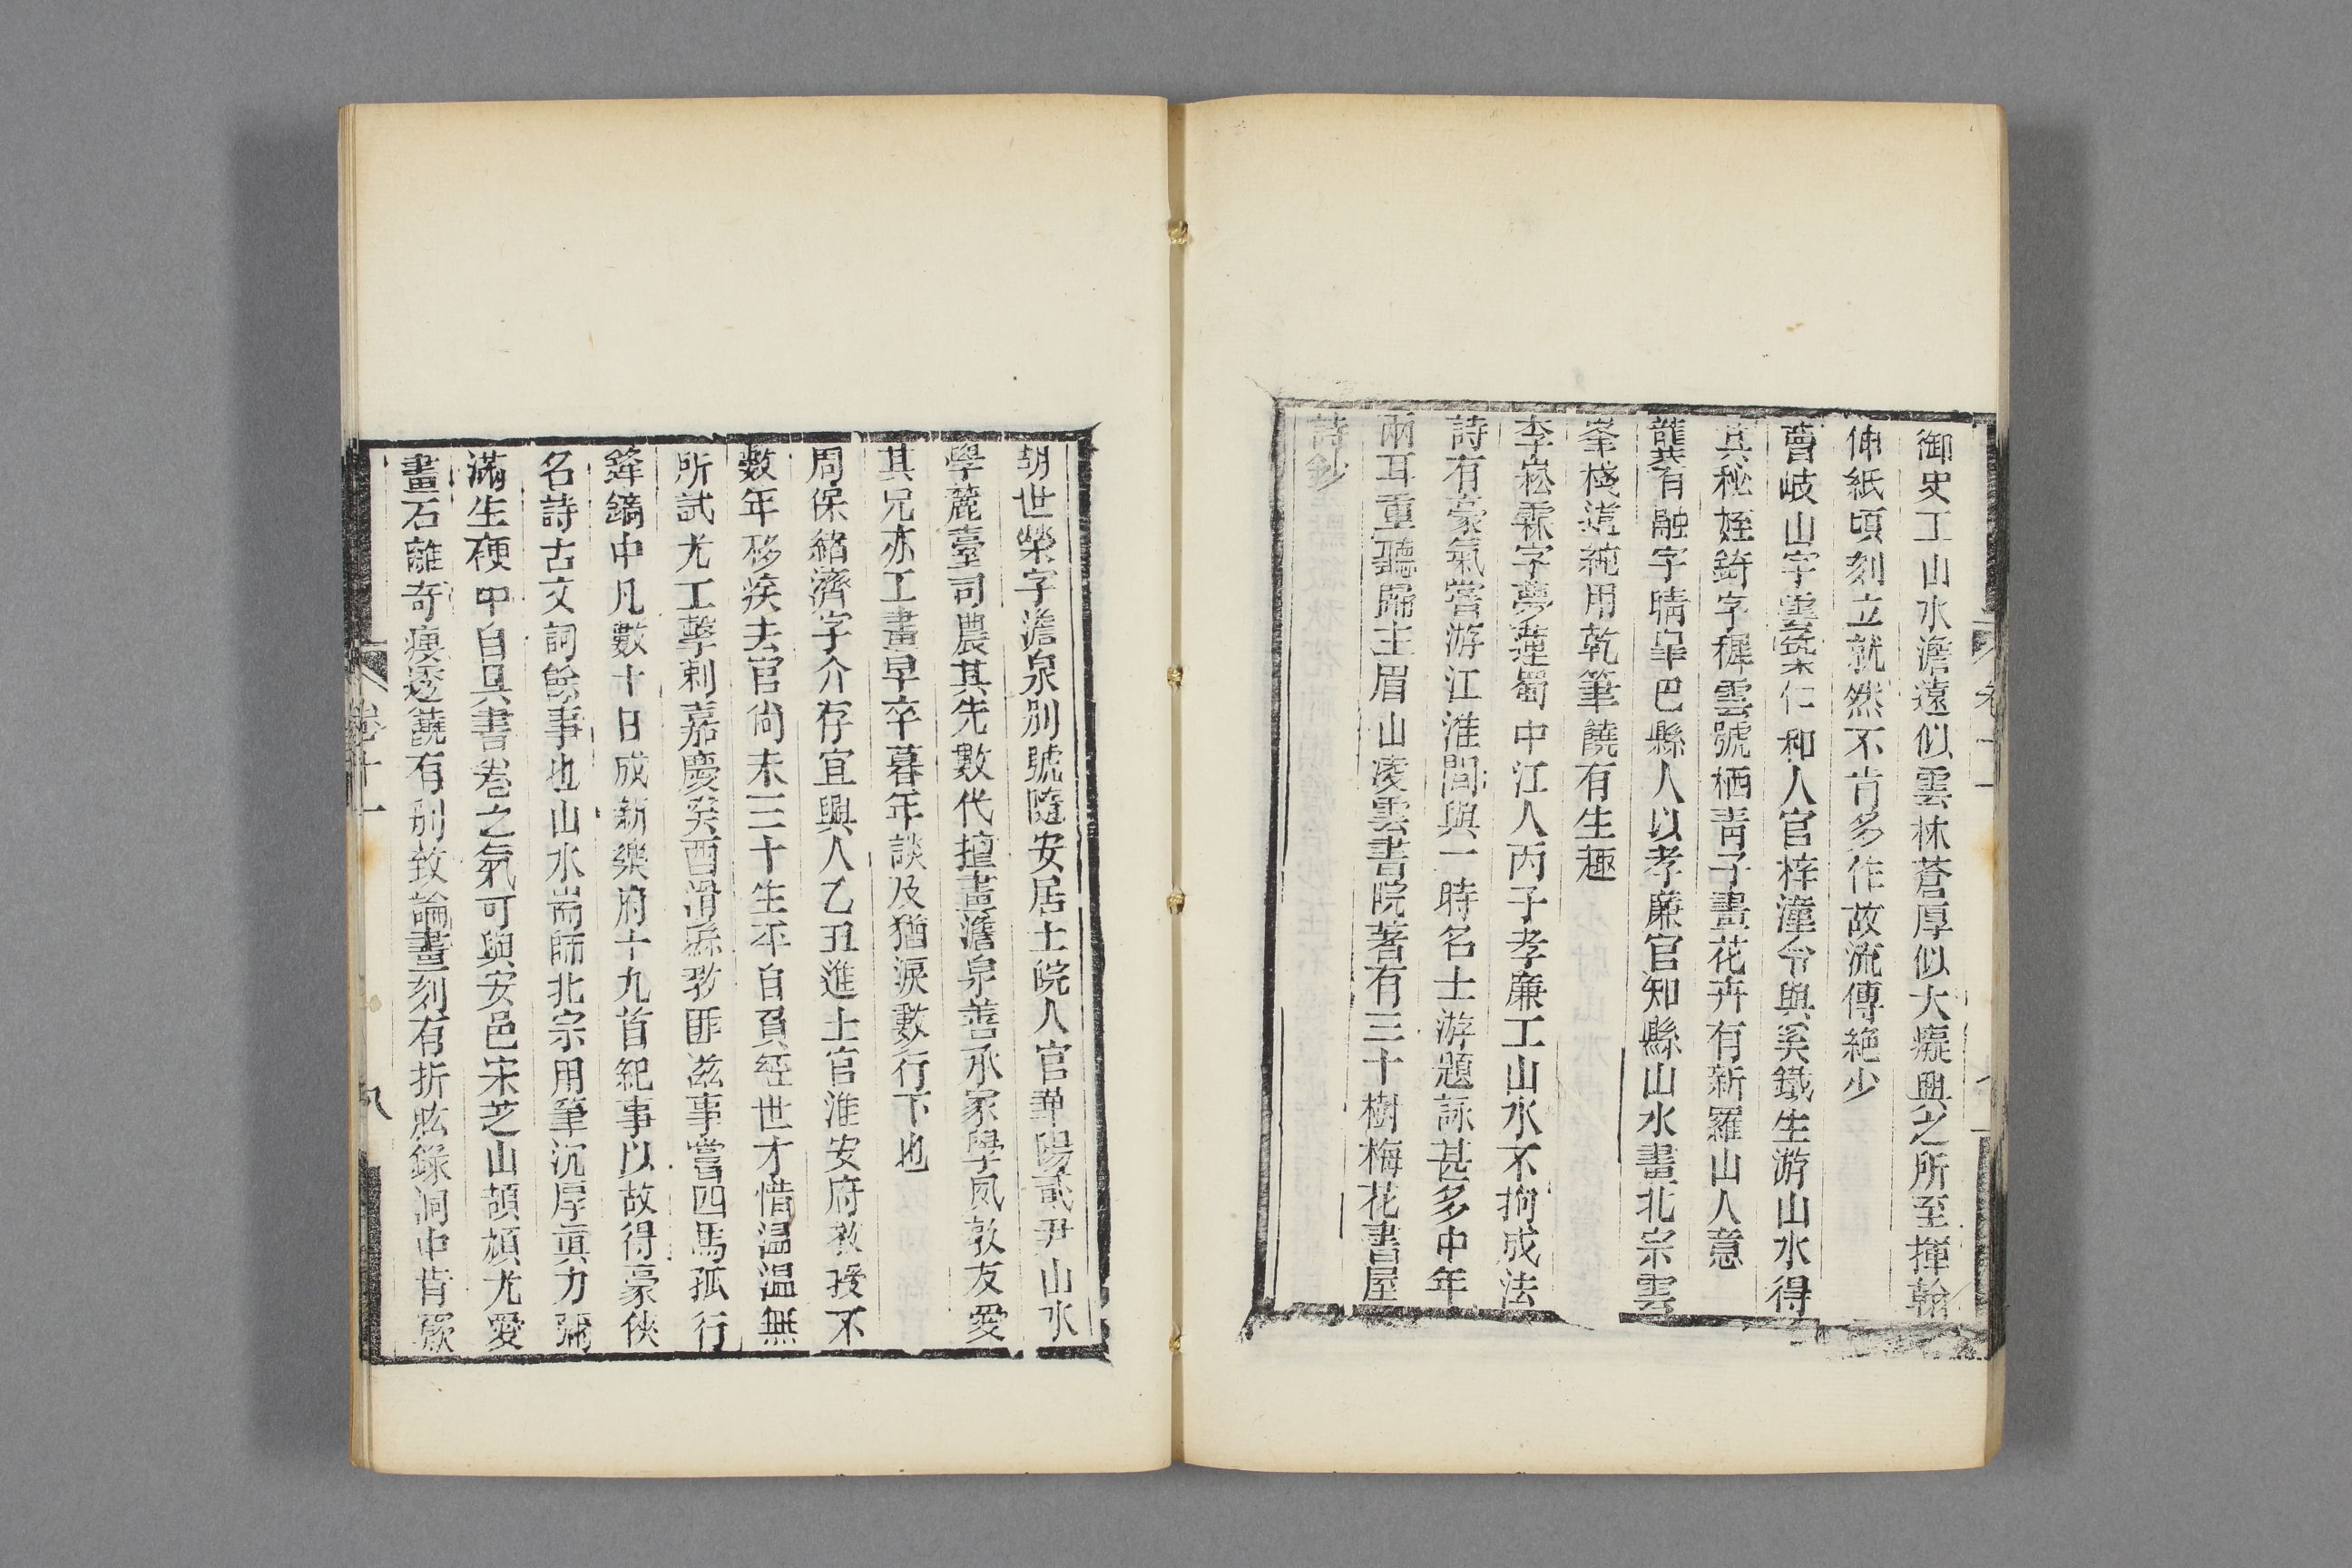 御史工山水澹遠似雲林蒼厚似大癡興之所至揮翰
伸紙頃刻立就然不肯多作故流傳絶少
曹岐山字雲槃仁和人官梓潼令與奚鐵生游山水得
其秘姪錡字穉雲號栖青子畫花卉有新羅山人意
龔有融字晴皐巴縣人以孝廉官知縣山水畫北宗雲
峯棧道純用乾筆饒有生趣
李崧霖字夢蓮蜀中江人丙子孝廉工山水不拘成法
詩有豪氣嘗游江淮間與一時名士游題詠甚多中年
兩耳重聽歸主眉山凌雲書院著有三十樹梅花書屋
詩鈔
胡世榮字澹泉別號隨安居士皖人官華陽貳尹山水
學麓臺司農其先數代擅畫澹泉善承家學夙敦友愛
其兄亦工畫早卒暮年談及猶淚數行下也
周保緒濟字介存宜興人乙丑進士官淮安府教授不
數年移疾去官尙未三十生平自負經世才惜温温無
所試尤工擊刺嘉慶癸酉滑縣教匪滋事嘗四馬孤行
鋒鏑中凡數十日成新樂府十九首紀事以故得豪俠
名詩古文詞餘事也山水耑師北宗用筆沉厚眞力彌
滿生硬中自具書卷之氣可與安邑宋芝山頡頏尤愛
畫石離奇瘦透饒有別致論畫刻有折肱錄洞中肯窾
卷十一
八